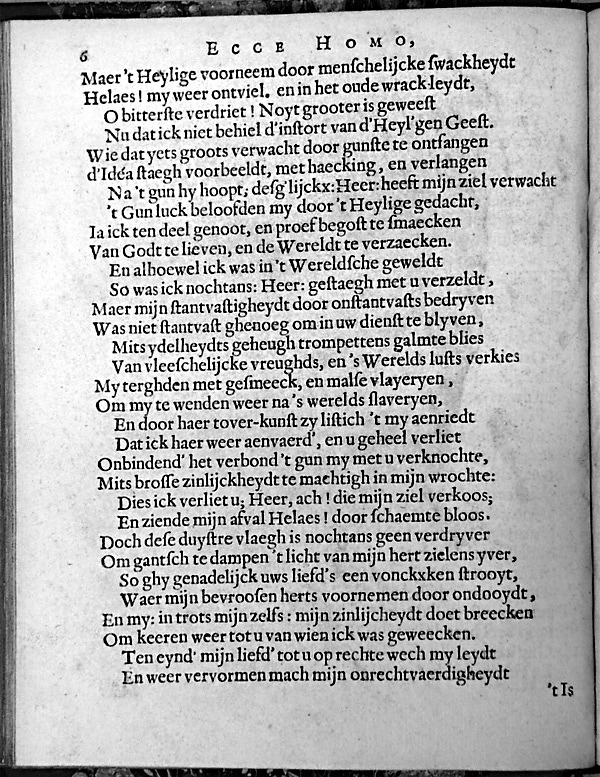 6
ECCE HOMO,
Maer 't Heylige voorneem door menschelijcke swackheydt
Helaes! my weer ontviel. en in het oude wrack-leydt,
O bitterste verdriet! Noyt grooter is geweest
Nu dat ick niet behiel d'instort van d'Heyl'gen Geest.
Wie dat yets groots verwacht door gunste te ontfangen
d'Idéa staegh voorbeeldt, met haecking, en verlangen
Na 't gun hy hoopt; desg'lijckx: Heer: heeft mijn ziel verwacht
't Gun luck beloofden my door 't Heylige gedacht,
Ia ick ten deel genoot, en proef begost te smaecken
Van Godt te lieven, en de Wereldt te verzaecken.
En alhoewel ick was in 't Wereldsche geweldt
So was ick nochtans: Heer: gestaegh met u verzeldt,
Maer mijn stantvastigheydt door onstantvasts bedryven
Was niet stantvast ghenoeg om in uw dienst te blyven,
Mits ydelheydts geheugh trompettens galmte blies
Van vleeschelijcke vreughds, en 's Werelds lusts verkies
My terghden met gesmeeck, en malse vlayeryen,
Om my te wenden weer na 's werelds slaveryen,
En door haer tover-kunst zy listich 't my aenriedt
Dat ick haer weer aenvaerd', en u geheel verliet
Onbindend' het verbond 't gun my met u verknochte,
Mits brosse zinlijckheydt te machtigh in mijn wrochte:
Dies ick verliet u; Heer, ach! die mijn ziel verkoos;
En ziende mijn afval Helaes! door schaemte bloos.
Doch dese duystre vlaegh is nochtans geen verdryver
Om gantsch te dampen 't licht van mijn hert zielens yver,
So ghy genadelijck uws liefd's een vonckxken strooyt,
Waer mijn bevroosen herts voornemen door ondooydt,
En my: in trots mijn zelfs: mijn zinlijcheydt doet breecken
Om keeren weer tot u van wien ick was geweecken.
Ten eynd' mijn liefd' tot u op rechte wech my leydt
En weer vervormen mach mijn onrechtvaerdigheydt
't Is